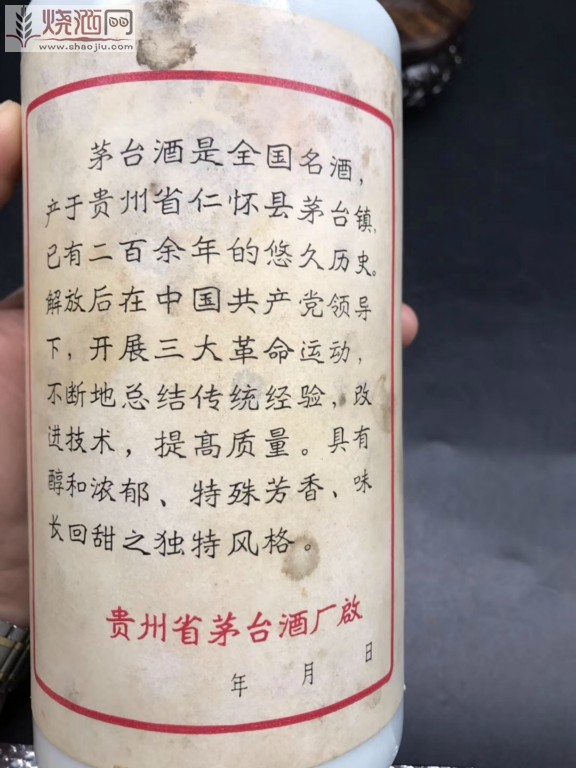 烧酒网
www.shaojiu.com
茅台酒是全国名酒，
产于贵州省仁怀县茅台镇，
已有二百余年的悠久历史。
解放后在中国共产党领导
下，开展三大革命运动，
不断地总结传统经验，改
进技术，提高质量。具有
醇和浓郁、特殊芳香、味
长回甜之独特风格。
贵州省茅台酒厂啟
年 月 日